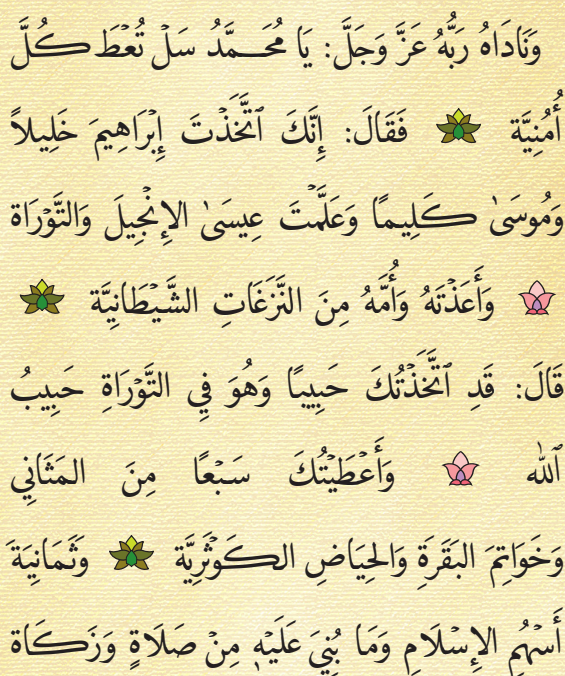 وَنَادَاهُ رَبُّهُ عَزَّ وَجَلَّ: يَا مُحَـــمَّدُ سَلْ تُعْطَ كُلَّ
أُمْنِيَّة فَقَالَ: إِنَّكَ ٱتَّخَذْتَ إِبْرَاهِيمَ خَلِيلاً
وَمُوسَىٰ كَلِيمًا وَعَلَّمْتَ عِيسَىٰ الإِنْجِيلَ وَالتَّوْرَاة
وَأَعَذْتَهُ وَأُمَّهُ مِنَ النَّزَغَاتِ الشَّيْطَانِيَّة
قَالَ: قَدِ ٱتَّخَذْتُكَ حَبِيبًا وَهُوَ فِي التَّوْرَاةِ حَبِيبُ
ٱللّٰه وَأَعْطَيْتُكَ سَبْعًا مِنَ المَثَانِي
وَخَوَاتِمَ البَقَرَةِ وَالحِيَاضِ الكَوْثَرِيَّة وَثَمَانِيَةَ
أَسْهُمِ الإِسْلَامِ وَمَا بُنِيَ عَلَيْهِ مِنْ صَلَاةٍ وَزَكَاة